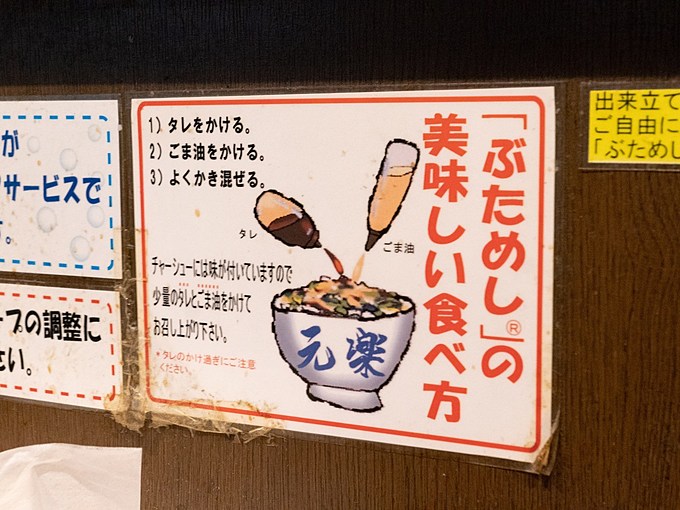 が
サービスで
。
プの調整に
さい。
「ぶためし」®の
美味しい食べ方
1）タレをかける。
2）ごま油をかける。
3）よくかき混ぜる。
タレ
ごま油
チャーシューには味が付いていますので
少量のタレとごま油をかけて
お召し上がり下さい。
*タレのかけ過ぎにご注意
ください。
元楽
出来立て
ご自由に
「ぶためし